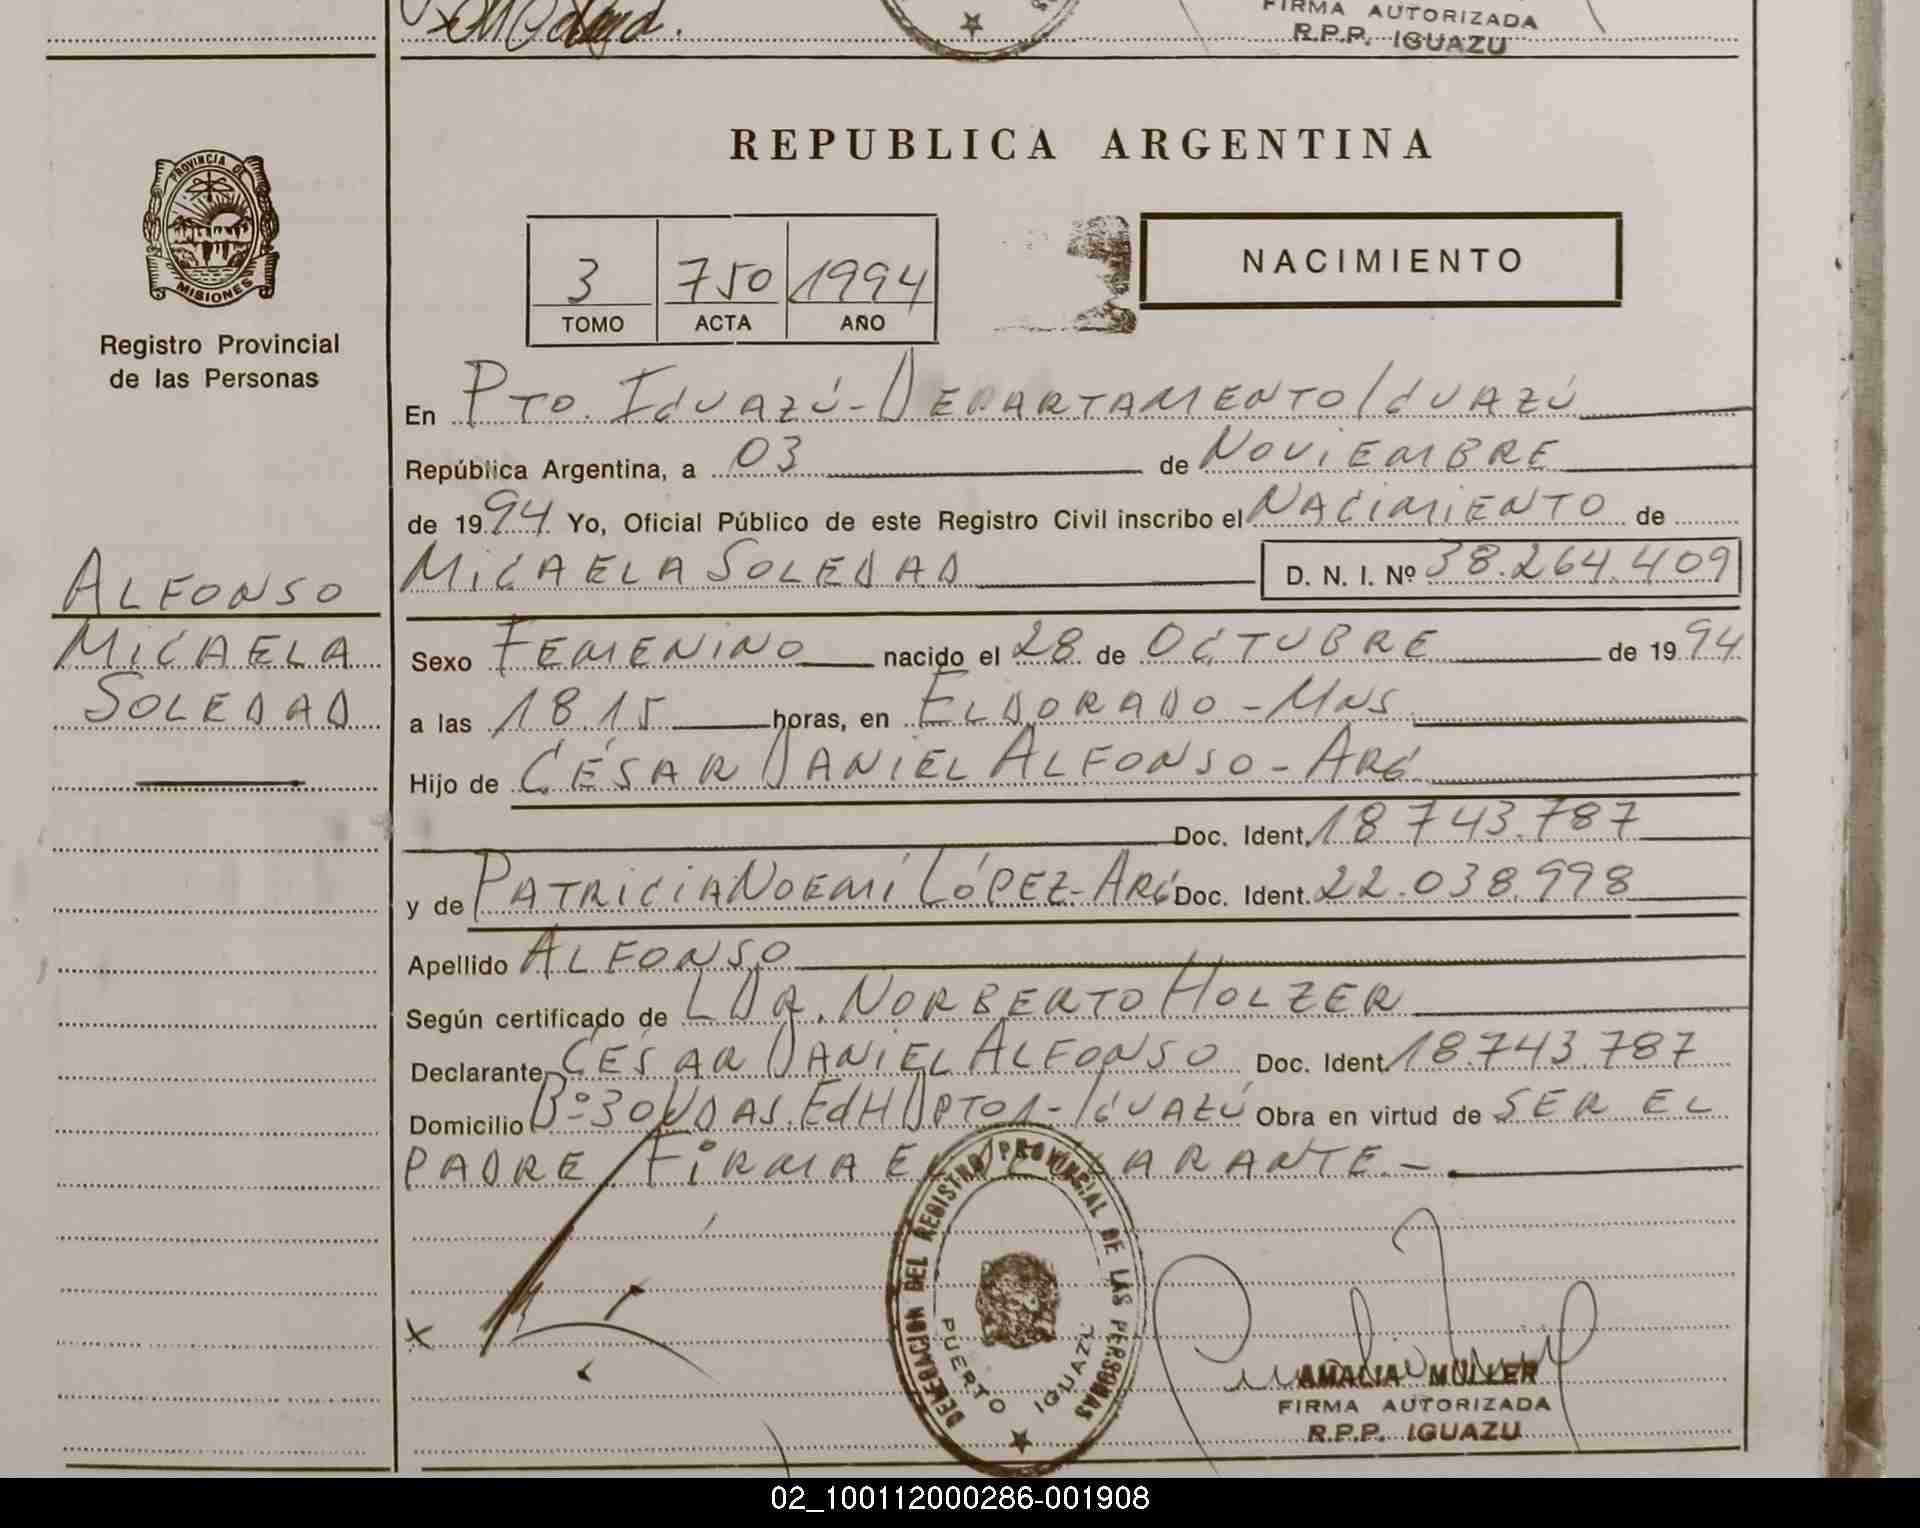 FIRMA AUTORIZADA
R.P.P. IGUAZU
REPUBLICA ARGENTINA
PROVINCIA DE
MISIONES
Registro Provincial
de las Personas
3 750 1994
TOMO ACTA AÑO
NACIMIENTO
En PTO. IGUAZÚ - DEPARTAMENTO IGUAZÚ
República Argentina, a 03 de NOVIEMBRE
de 1994 Yo, Oficial Público de este Registro Civil inscribo el NACIMIENTO de
MICAELA SOLEDAD D. N. I. Nº 38.264.409
ALFONSO
MICAELA
SOLEDAD
Sexo FEMENINO nacido el 28 de OCTUBRE de 1994
a las 18.15 horas, en ELDORADO - MNS
Hijo de CÉSAR DANIEL ALFONSO - ARG
Doc. Ident. 18.743.787
y de PATRICIA NOEMÍ LÓPEZ - ARG Doc. Ident. 22.038.998
Apellido ALFONSO
Según certificado de DR. NORBERTO HOLZER
Declarante CÉSAR DANIEL ALFONSO Doc. Ident. 18.743.787
Domicilio Bº 30 VDAS. Ed H DPTO 1 - IGUAZÚ Obra en virtud de SER EL
PADRE FIRMA EL DECLARANTE. -
DELEGACION DEL REGISTRO PROVINCIAL DE LAS PERSONAS
PUERTO IGUAZU
x
AMALIA MULLER
FIRMA AUTORIZADA
R.P.P. IGUAZU
02_100112000286-001908